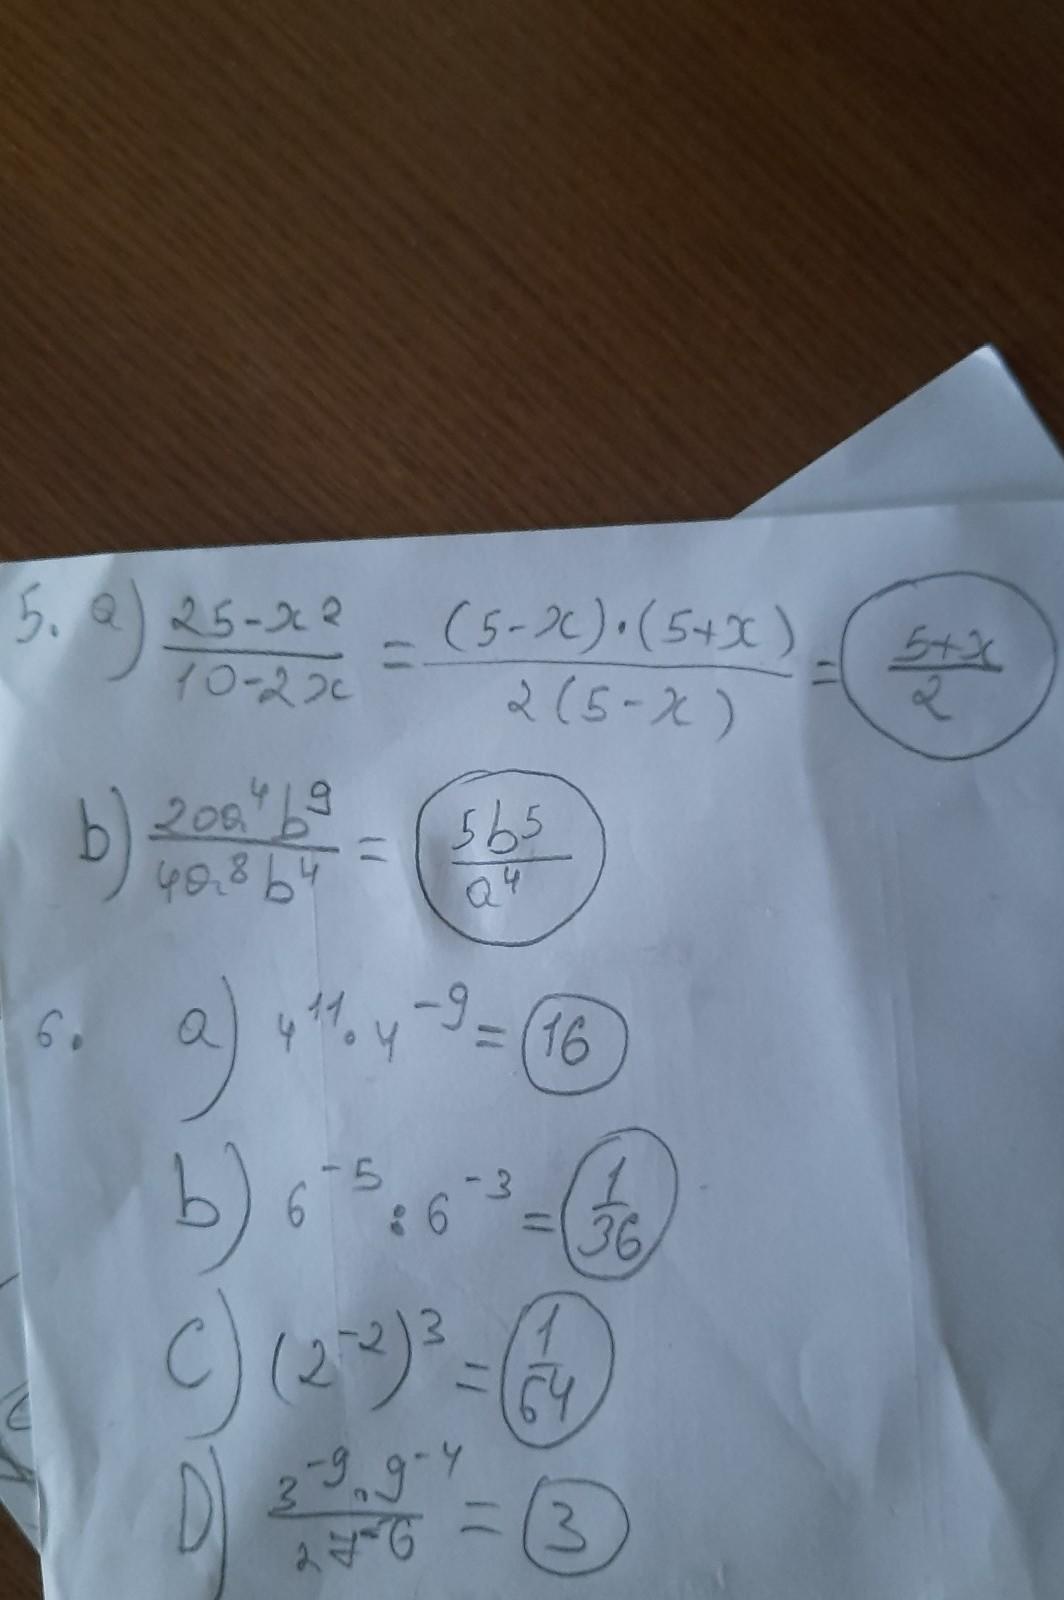 5. a) 25-x² / 10-2x = (5-x)·(5+x) / 2(5-x) = 5+x / 2
b) 20a⁴b⁹ / 4a⁸b⁴ = 5b⁵ / a⁴
6. a) 4¹¹·4⁻⁹ = 16
b) 6⁻⁵:6⁻³ = 1/36
C) (2⁻²)³ = 1/64
D) 3⁻⁹·9⁻⁴ / 27⁻⁶ = 3